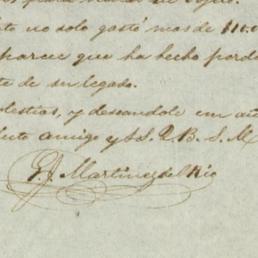 to no solo gastó mas de $10.0
parece que ha hecho perd
te de su legado.
olestias, y deseandole un añ
ecto amigo y S.S. Q. B. S. M.
G. Martinez del Rio